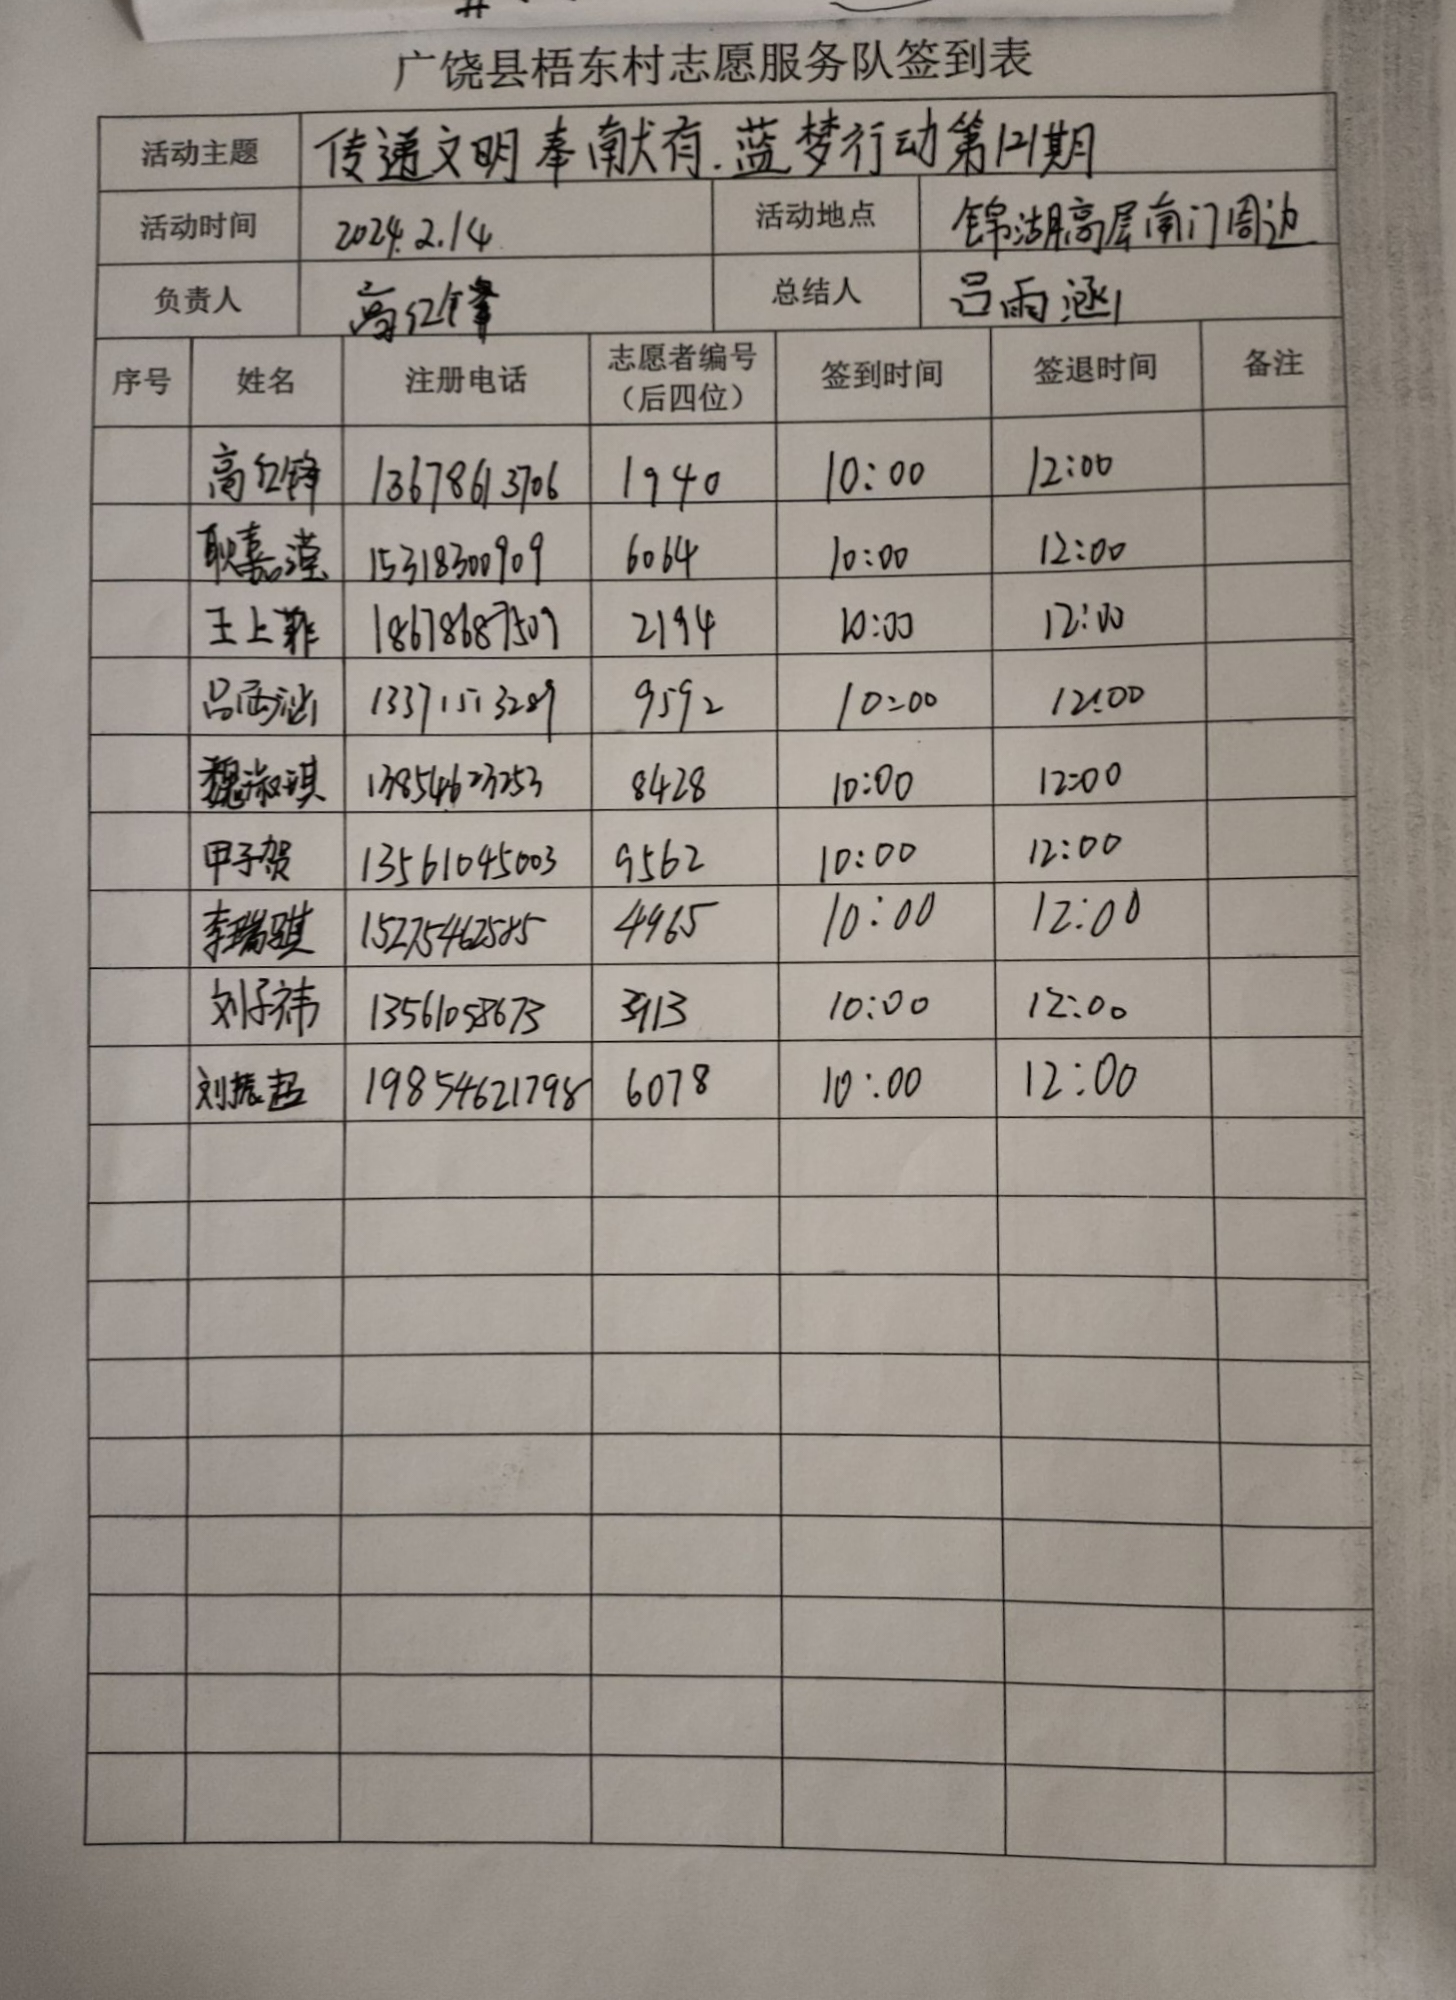 广饶县梧东村志愿服务队签到表
活动主题 传递文明奉献有.蓝梦行动第121期
活动时间 2024.2.14 活动地点 锦湖高层南门周边
负责人 高红锋 总结人 吕雨涵
序号 姓名 注册电话 志愿者编号（后四位） 签到时间 签退时间 备注
高红锋 13678613706 1940 10:00 12:00
耿嘉滢 15318300909 6064 10:00 12:00
王上菲 18678687509 2194 10:00 12:00
吕雨涵 13371513289 9592 10:00 12:00
魏淑琪 13854623253 8428 10:00 12:00
甲子贺 13561045003 9562 10:00 12:00
李瑞琪 15275462585 4965 10:00 12:00
刘子祎 13561058673 3913 10:00 12:00
刘振超 19854621798 6078 10:00 12:00